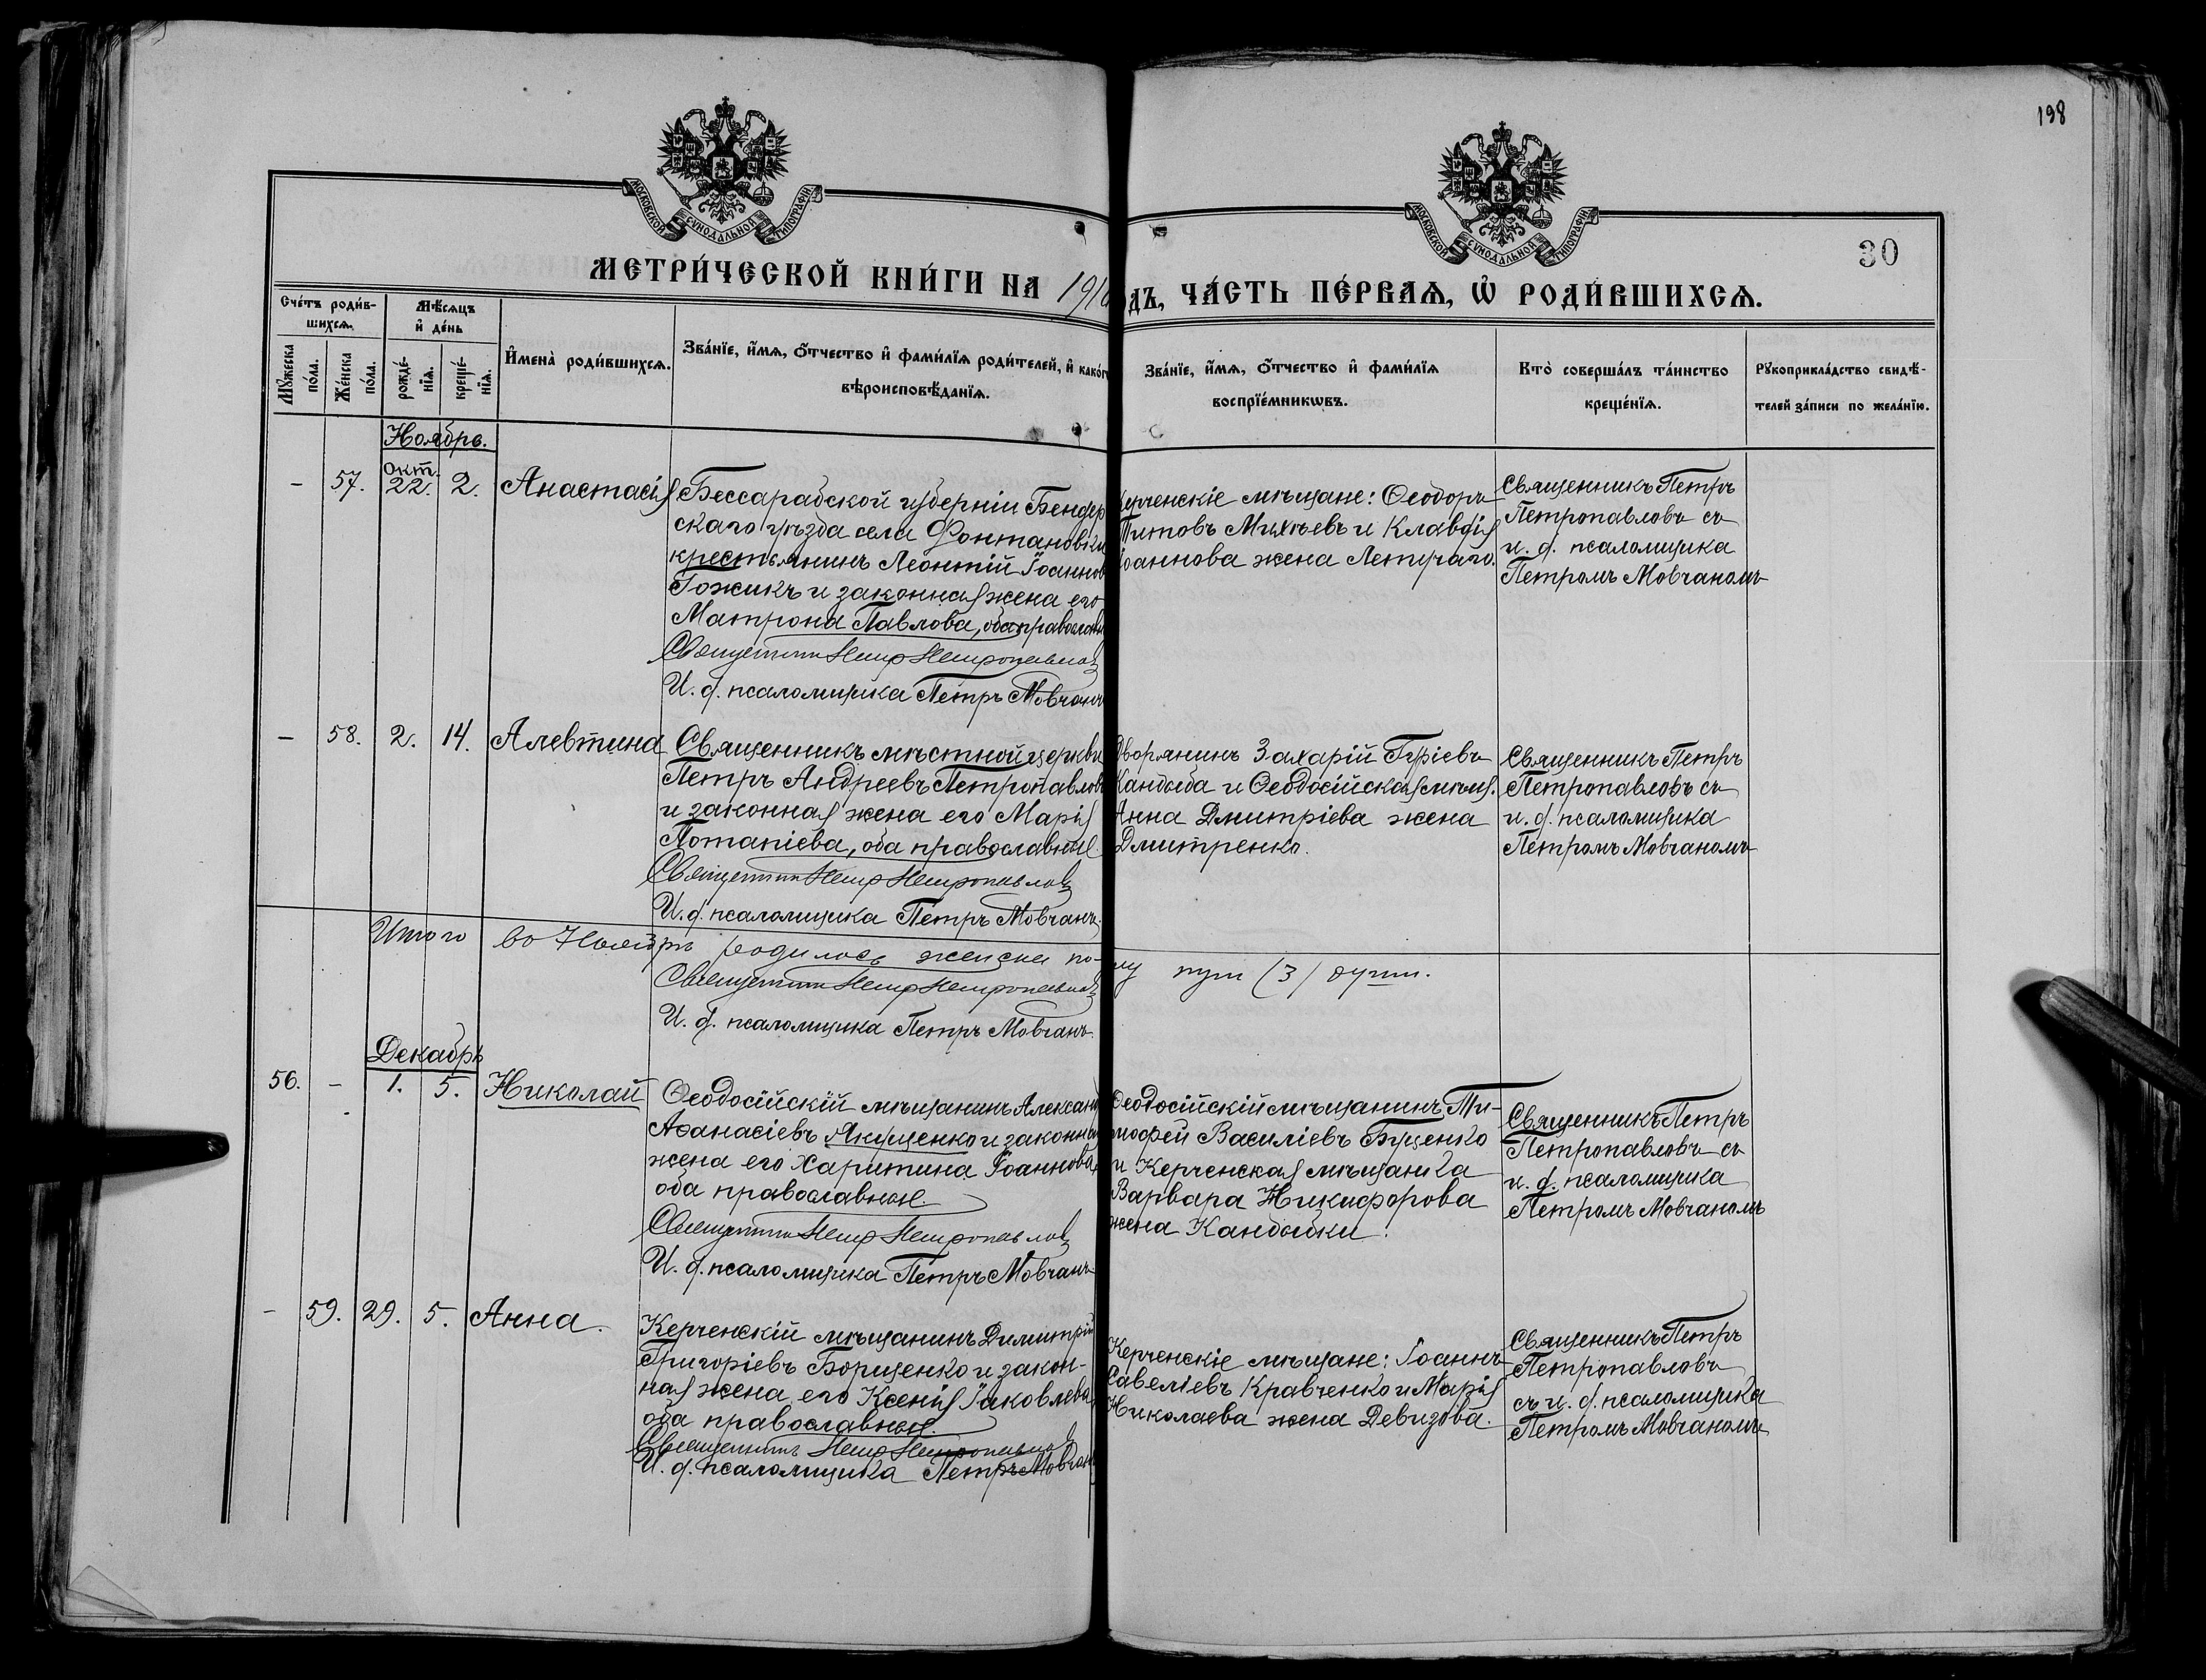 198
30
МОСКОВСКОЙ СѴНОДАЛЬНОЙ ТИПОГРАФІИ
МОСКОВСКОЙ СѴНОДАЛЬНОЙ ТИПОГРАФІИ
МЕТРИ́ЧЕСКОЙ КНИ́ГИ НА 191
ДЪ, ЧА́СТЬ ПЕ́РВАѦ, Ѡ РОДИ́ВШИХСѦ.
Сче́тъ роди́в-
шихсѧ.
Мꙋ́жеска
по́ла.
Же́нска
по́ла.
Мѣ́сѧцъ
и҆ де́нь
рожде́-
нїѧ.
креще́-
нїѧ.
И҆мена̀ роди́вшихсѧ.
Зва́нїе, и҆́мѧ, о҆́тчество и҆ фами́лїѧ роди́телей, и҆ како́г
вѣроисповѣ́данїѧ.
Зва́нїе, и҆́мѧ, о҆́тчество и҆ фами́лїѧ
воспрїе́мникѡвъ.
Кто̀ соверша́лъ та́инство
креще́нїѧ.
Рꙋкоприкла́дство свидѣ́-
телей за́писи по жела́нїю.
Ноябрь.
- 57. Окт. 22. 2. Анастасія
Бессарабской губерніи Бендер
скаго уѣзда села Фонтановки
крестьянинъ Леонтій Іоаннов
Гожикъ и законная жена его
Матрона Павлова, оба православн
Священникъ Петръ Петропавловъ
И. д. псаломщика Петръ Мовчанъ
Керченскіе мѣщане: Ѳеодоръ
Титовъ Михѣевъ и Клавдія
Іоаннова жена Летучаго.
Священникъ Петръ
Петропавловъ съ
и. д. псаломщика
Петромъ Мовчаномъ
- 58. 2. 14. Алевтина
Священникъ мѣстной церкви
Петръ Андреевъ Петропавловъ
и законная жена его Марія
Потапіева, оба православные.
Священникъ Петръ Петропавловъ
И. д. псаломщика Петръ Мовчанъ.
Дворянинъ Захарій Гуріевъ
Кандыба и Ѳеодосійская мѣщ.
Анна Дмитріева жена
Дмитренко.
Священникъ Петръ
Петропавловъ съ
и. д. псаломщика
Петромъ Мовчаномъ
Итого во Ноябрѣ родилось женска по-
лу три (3) душ.
Священникъ Петръ Петропавловъ
И. д. псаломщика Петръ Мовчанъ
Декабрь
56. - 1. 5. Николай
Ѳеодосійскій мѣщанинъ Алексан
Аѳанасіевъ Якущенко и законная
жена его Харитина Іоаннова,
оба православные.
Священникъ Петръ Петропавловъ
И. д. псаломщика Петръ Мовчанъ
Ѳеодосійскій мѣщанинъ Ти-
моѳей Василіевъ Буценко
и Керченская мѣщанка
Варвара Никифорова
жена Кандыбки.
Священникъ Петръ
Петропавловъ съ
и. д. псаломщика
Петромъ Мовчаномъ
- 59. 29. 5. Анна.
Керченскій мѣщанинъ Димитрій
Григоріевъ Борщенко и закон-
ная жена его Ксенія Іаковлева
оба православные.
Священникъ Петръ Петропавловъ
И. д. псаломщика Петръ Мовчан
Керченскіе мѣщане: Іоаннъ
Савеліевъ Кравченко и Марія
Николаева жена Девизова.
Священникъ Петръ
Петропавловъ
съ и. д. псаломщика
Петромъ Мовчаномъ